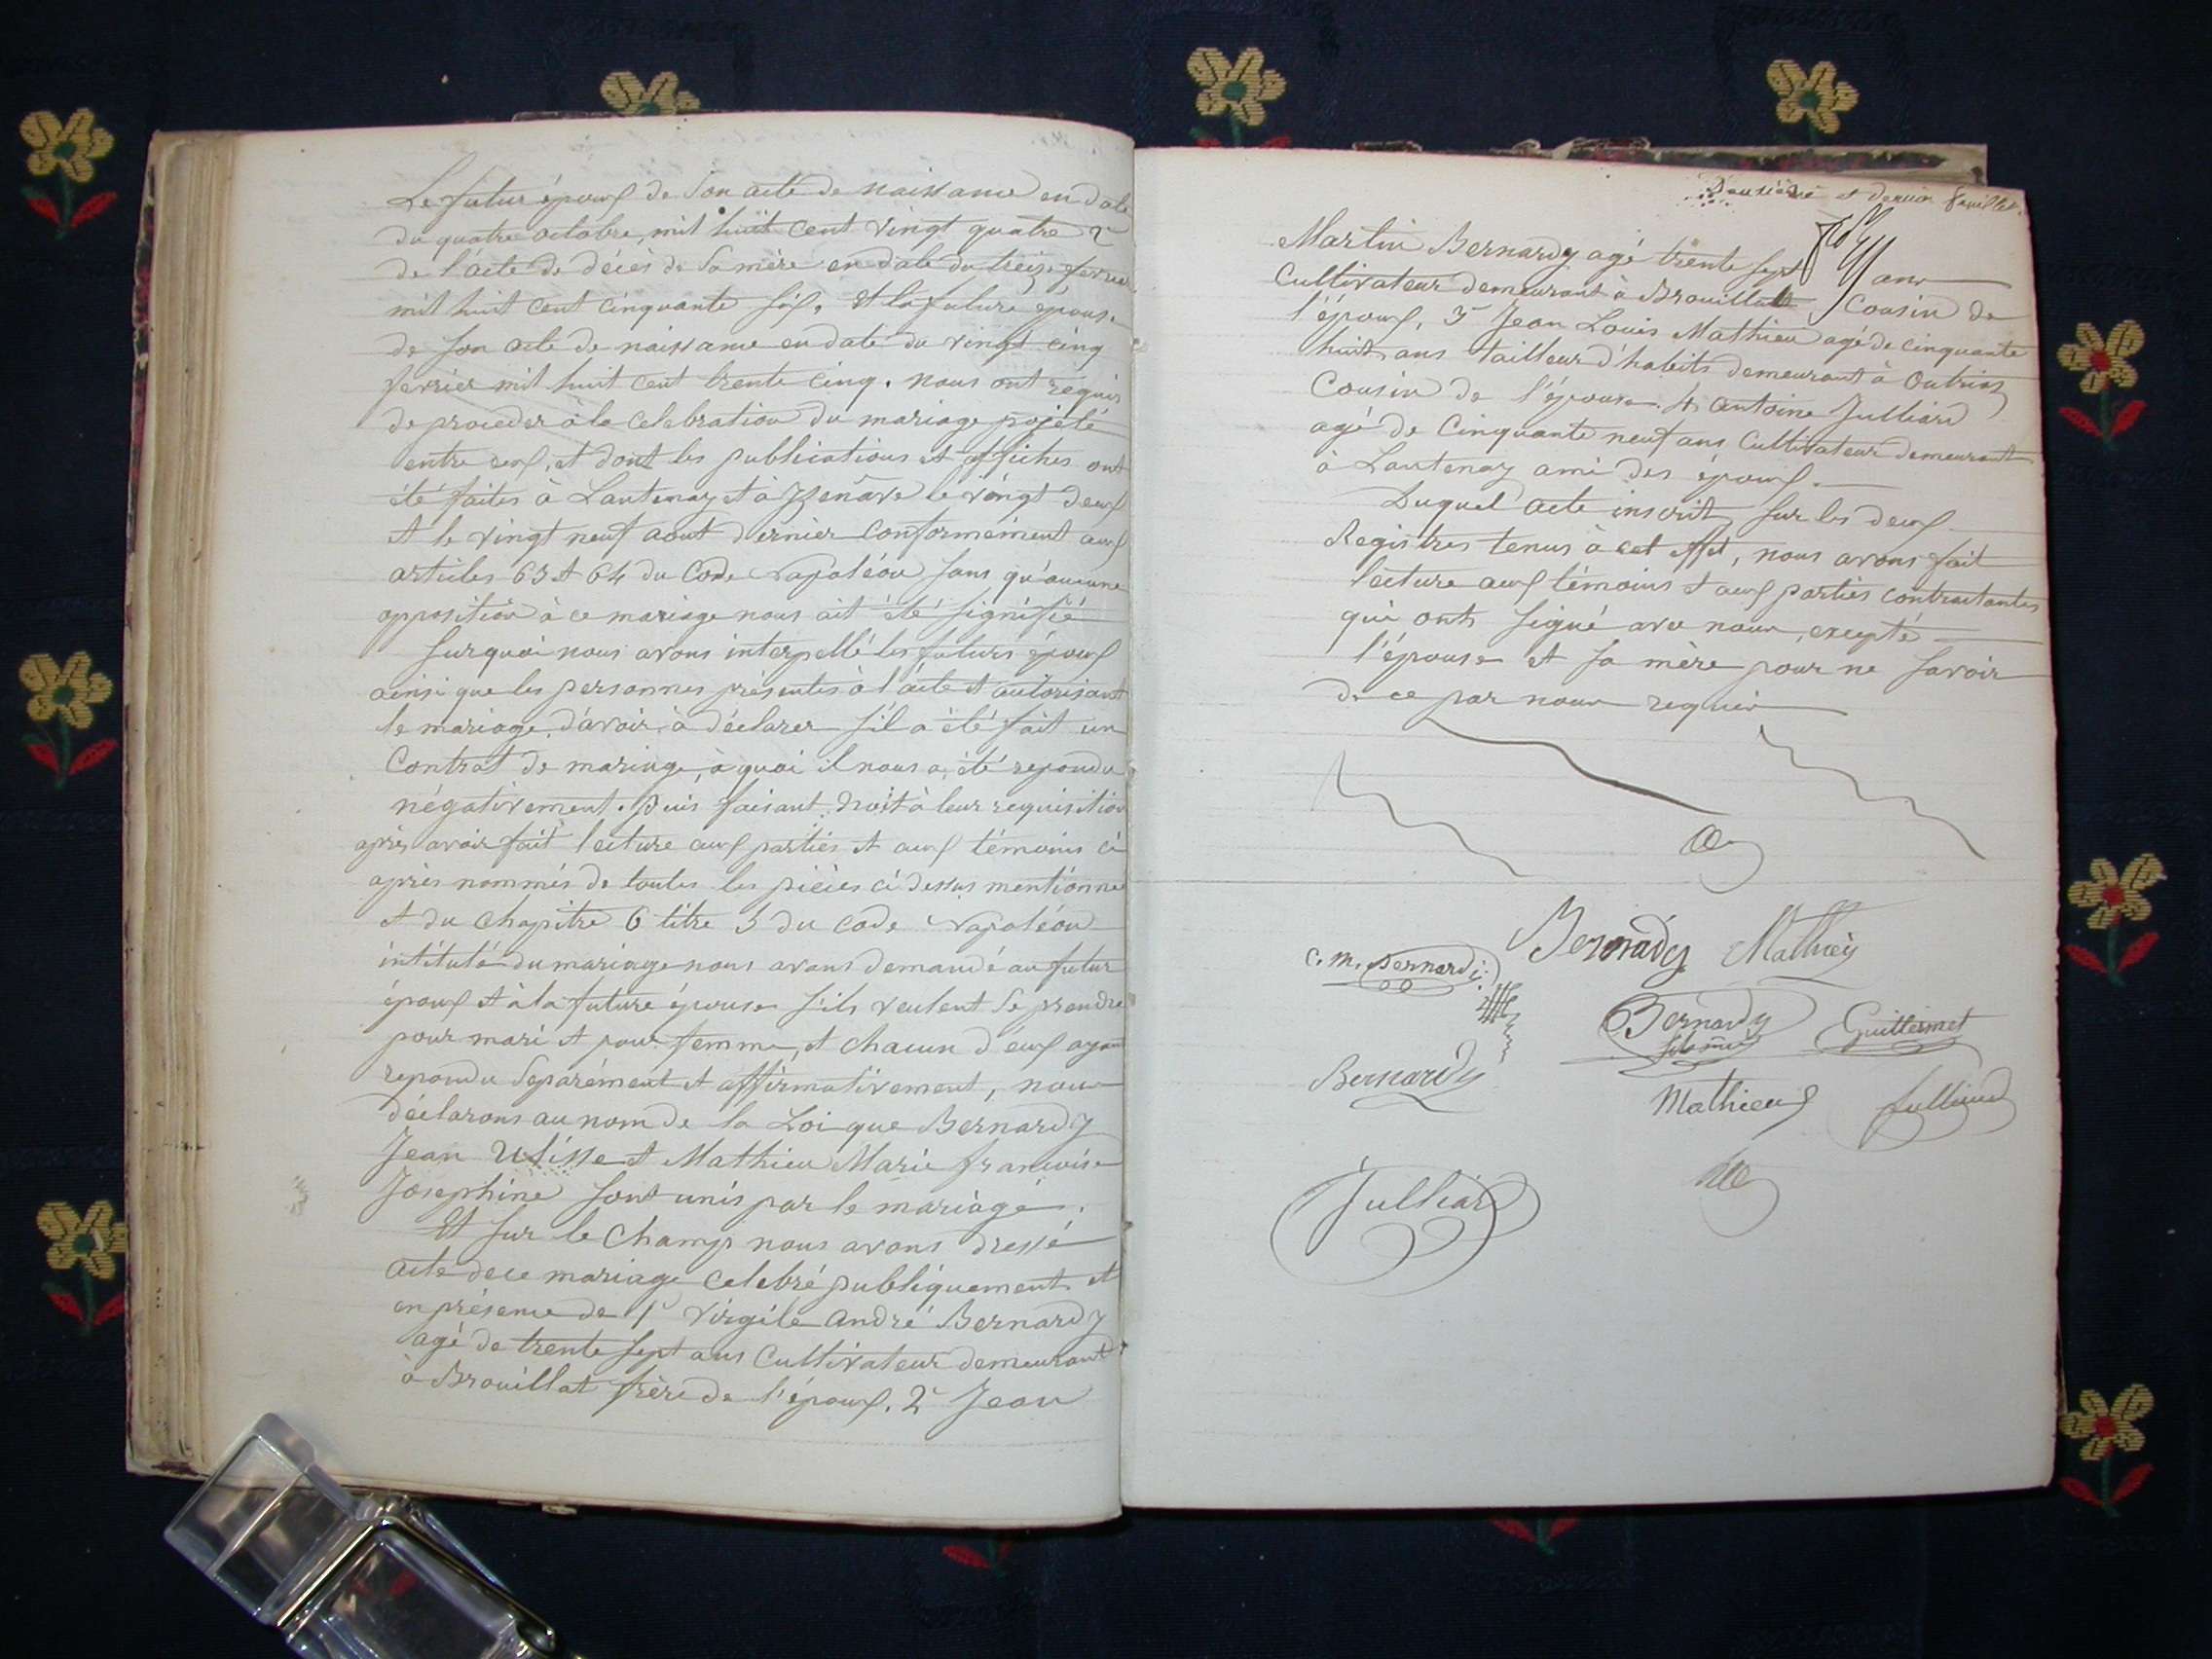 Le futur époux de Son acte de naissance en date
du quatre octobre, mil huit cent vingt quatre 2°
de l'acte de décès de Sa mère en date du treize fevrier
mil huit cent cinquante six, Et la future épouse
de son acte de naissance en date du vingt cinq
fevrier mil huit cent trente cinq. nous ont requis
de proceder à la celebration du mariage projeté
entre eux, et dont les publications et affiches ont
été faites à Lantenay et à Izenave le vingt deux
et le vingt neuf aout dernier conformément aux
articles 63 et 64 du Code Napoléon sans qu'aucune
opposition à ce mariage nous ait été signifié
Surquoi nous avons interpellé les futurs époux
ainsi que les personnes présentes à l'acte et autorisant
le mariage d'avoir à déclarer s'il a été fait un
Contrat de mariage, à quoi il nous a été repondu
négativement. Puis faisant droit à leur requisition
après avoir fait lecture aux parties et aux témoins ci
après nommés de toutes les pièces ci dessus mentionné
et du chapitre 6 titre 5 du code Napoléon
intitulé du mariage nous avons demandé au futur
époux et à la future épouse s'ils veulent Se prendre
pour mari et pour femme, et chacun d'eux ayant
repondu Separément et affirmativement, nous
déclarons au nom de la Loi que Bernardy
Jean Ulisse et Mathieu Marie francoise
Josephine sont unis par le mariage.
Et sur le Champ nous avons dressé
acte de ce mariage celebré publiquement et
en présence de 1° Virgile andré Bernardy
agé de trente sept ans Cultivateur demeurant
à Brouillat frère de l'époux. 2° Jean
Deuxième et dernier feuillet.
Martin Bernardy agé trente sept ans
Cultivateur demeurant à Brouillat Cousin de
l'époux, 3° Jean Louis Mathieu agé de cinquante
huit ans tailleur d'habits demeurant à Outriaz
Cousin de l'épouse. 4° antoine Julliard
agé de Cinquante neuf ans Cultivateur demeurant
à Lantenay ami des époux.
Duquel acte inscrit sur les deux
Registres tenus à cet effet, nous avons fait
lecture aux témoins et aux parties contractantes
qui ont signé avec nous, excepté
l'épouse et sa mère pour ne savoir
de ce par nous requis
Bernardy Mathieu
C. M. Bernardy
Bernardy Guillermet
Bernardy
Mathieu Julliard
Julliard